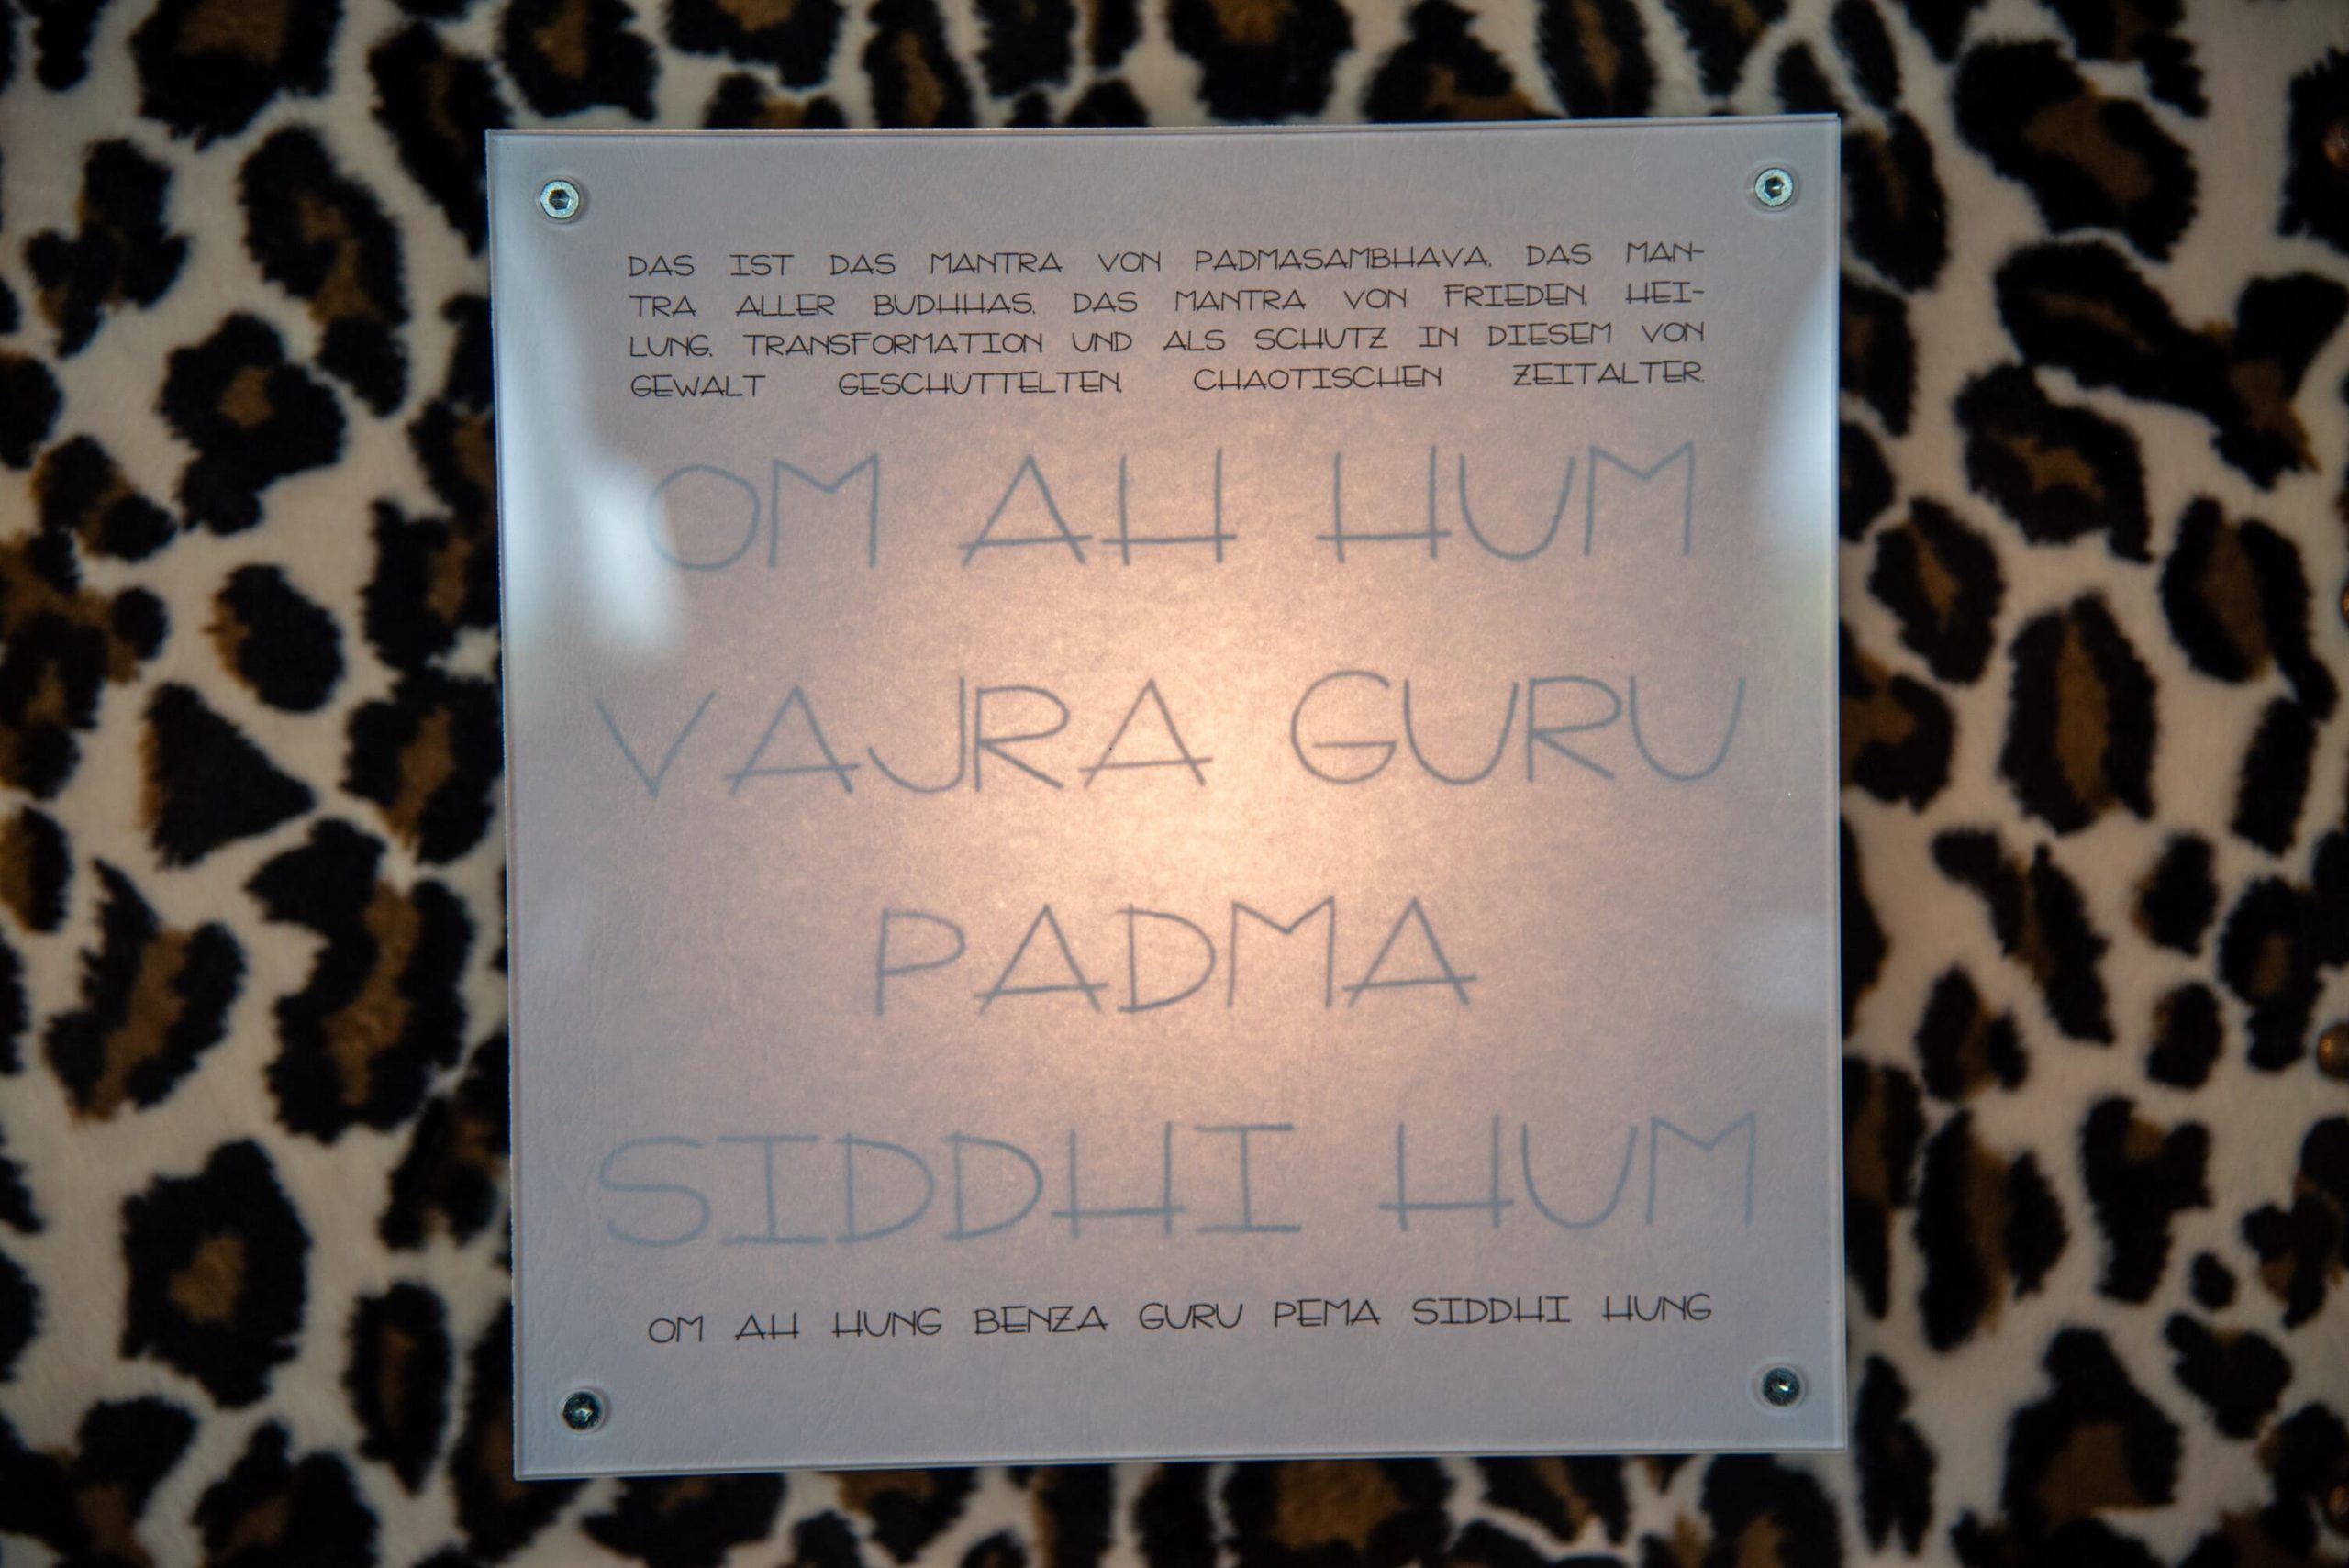 DAS IST DAS MANTRA VON PADMASAMBHAVA, DAS MAN-
TRA ALLER BUDHHAS, DAS MANTRA VON FRIEDEN, HEI-
LUNG, TRANSFORMATION UND ALS SCHUTZ IN DIESEM VON
GEWALT GESCHÜTTELTEN, CHAOTISCHEN ZEITALTER.
OM AH HUM
VAJRA GURU
PADMA
SIDDHI HUM
OM AH HUNG BENZA GURU PEMA SIDDHI HUNG